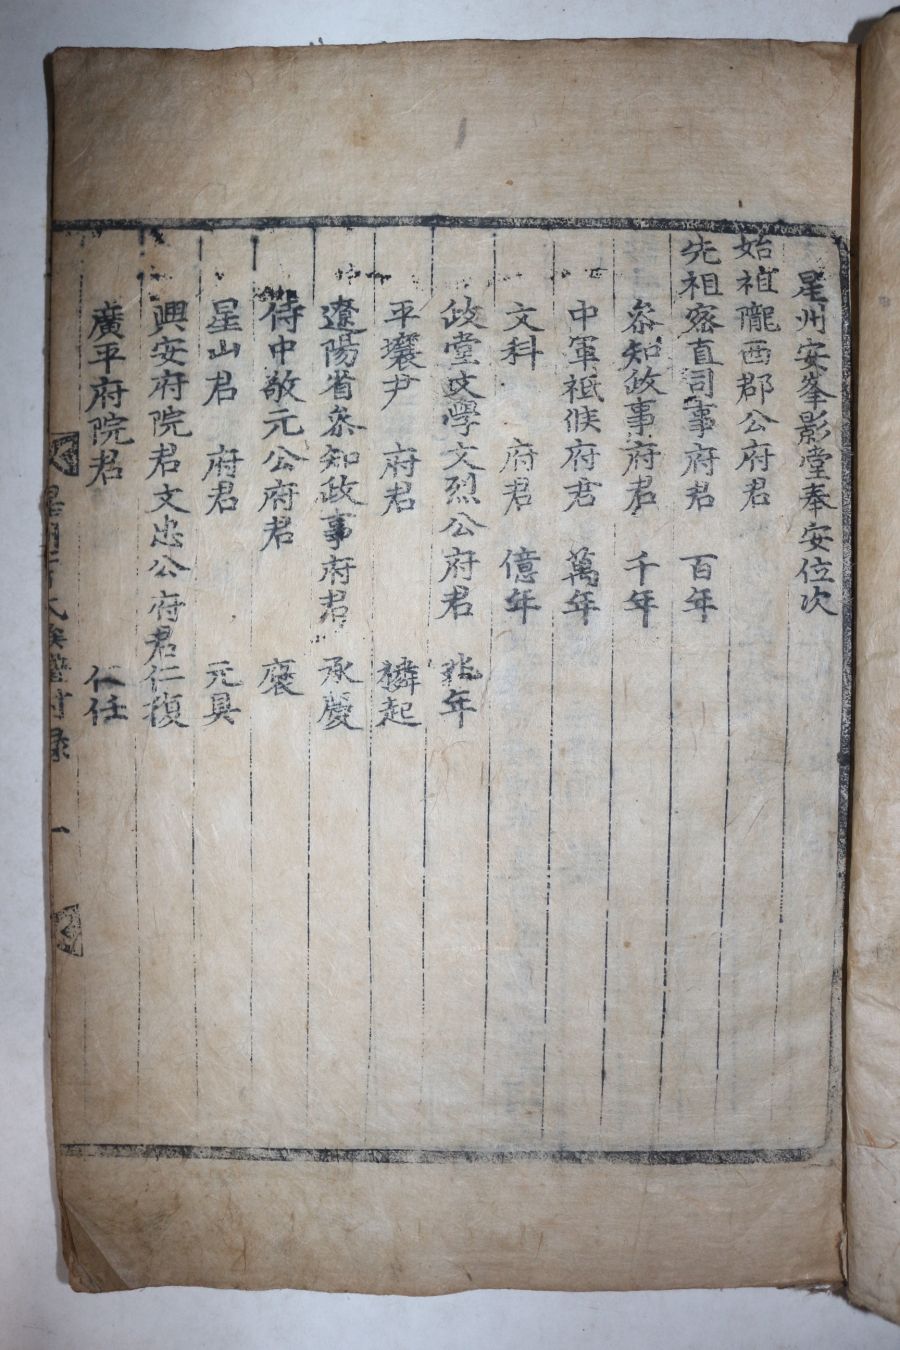 星州安峯影堂奉安位次
始祖隴西郡公府君
先祖密直司事府君 百年
叅知政事府君 千年
中軍祗候府君 萬年
文科 府君 億年
政堂文學文烈公府君 兆年
平壤尹 府君 麟起
遼陽省叅知政事府君 承慶
侍中敬元公府君 褒
星山君 府君 元具
興安府院君文忠公府君 仁復
廣平府院君 仁任
附錄 一